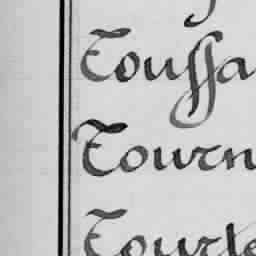 Toussa
Tourn
Tourte